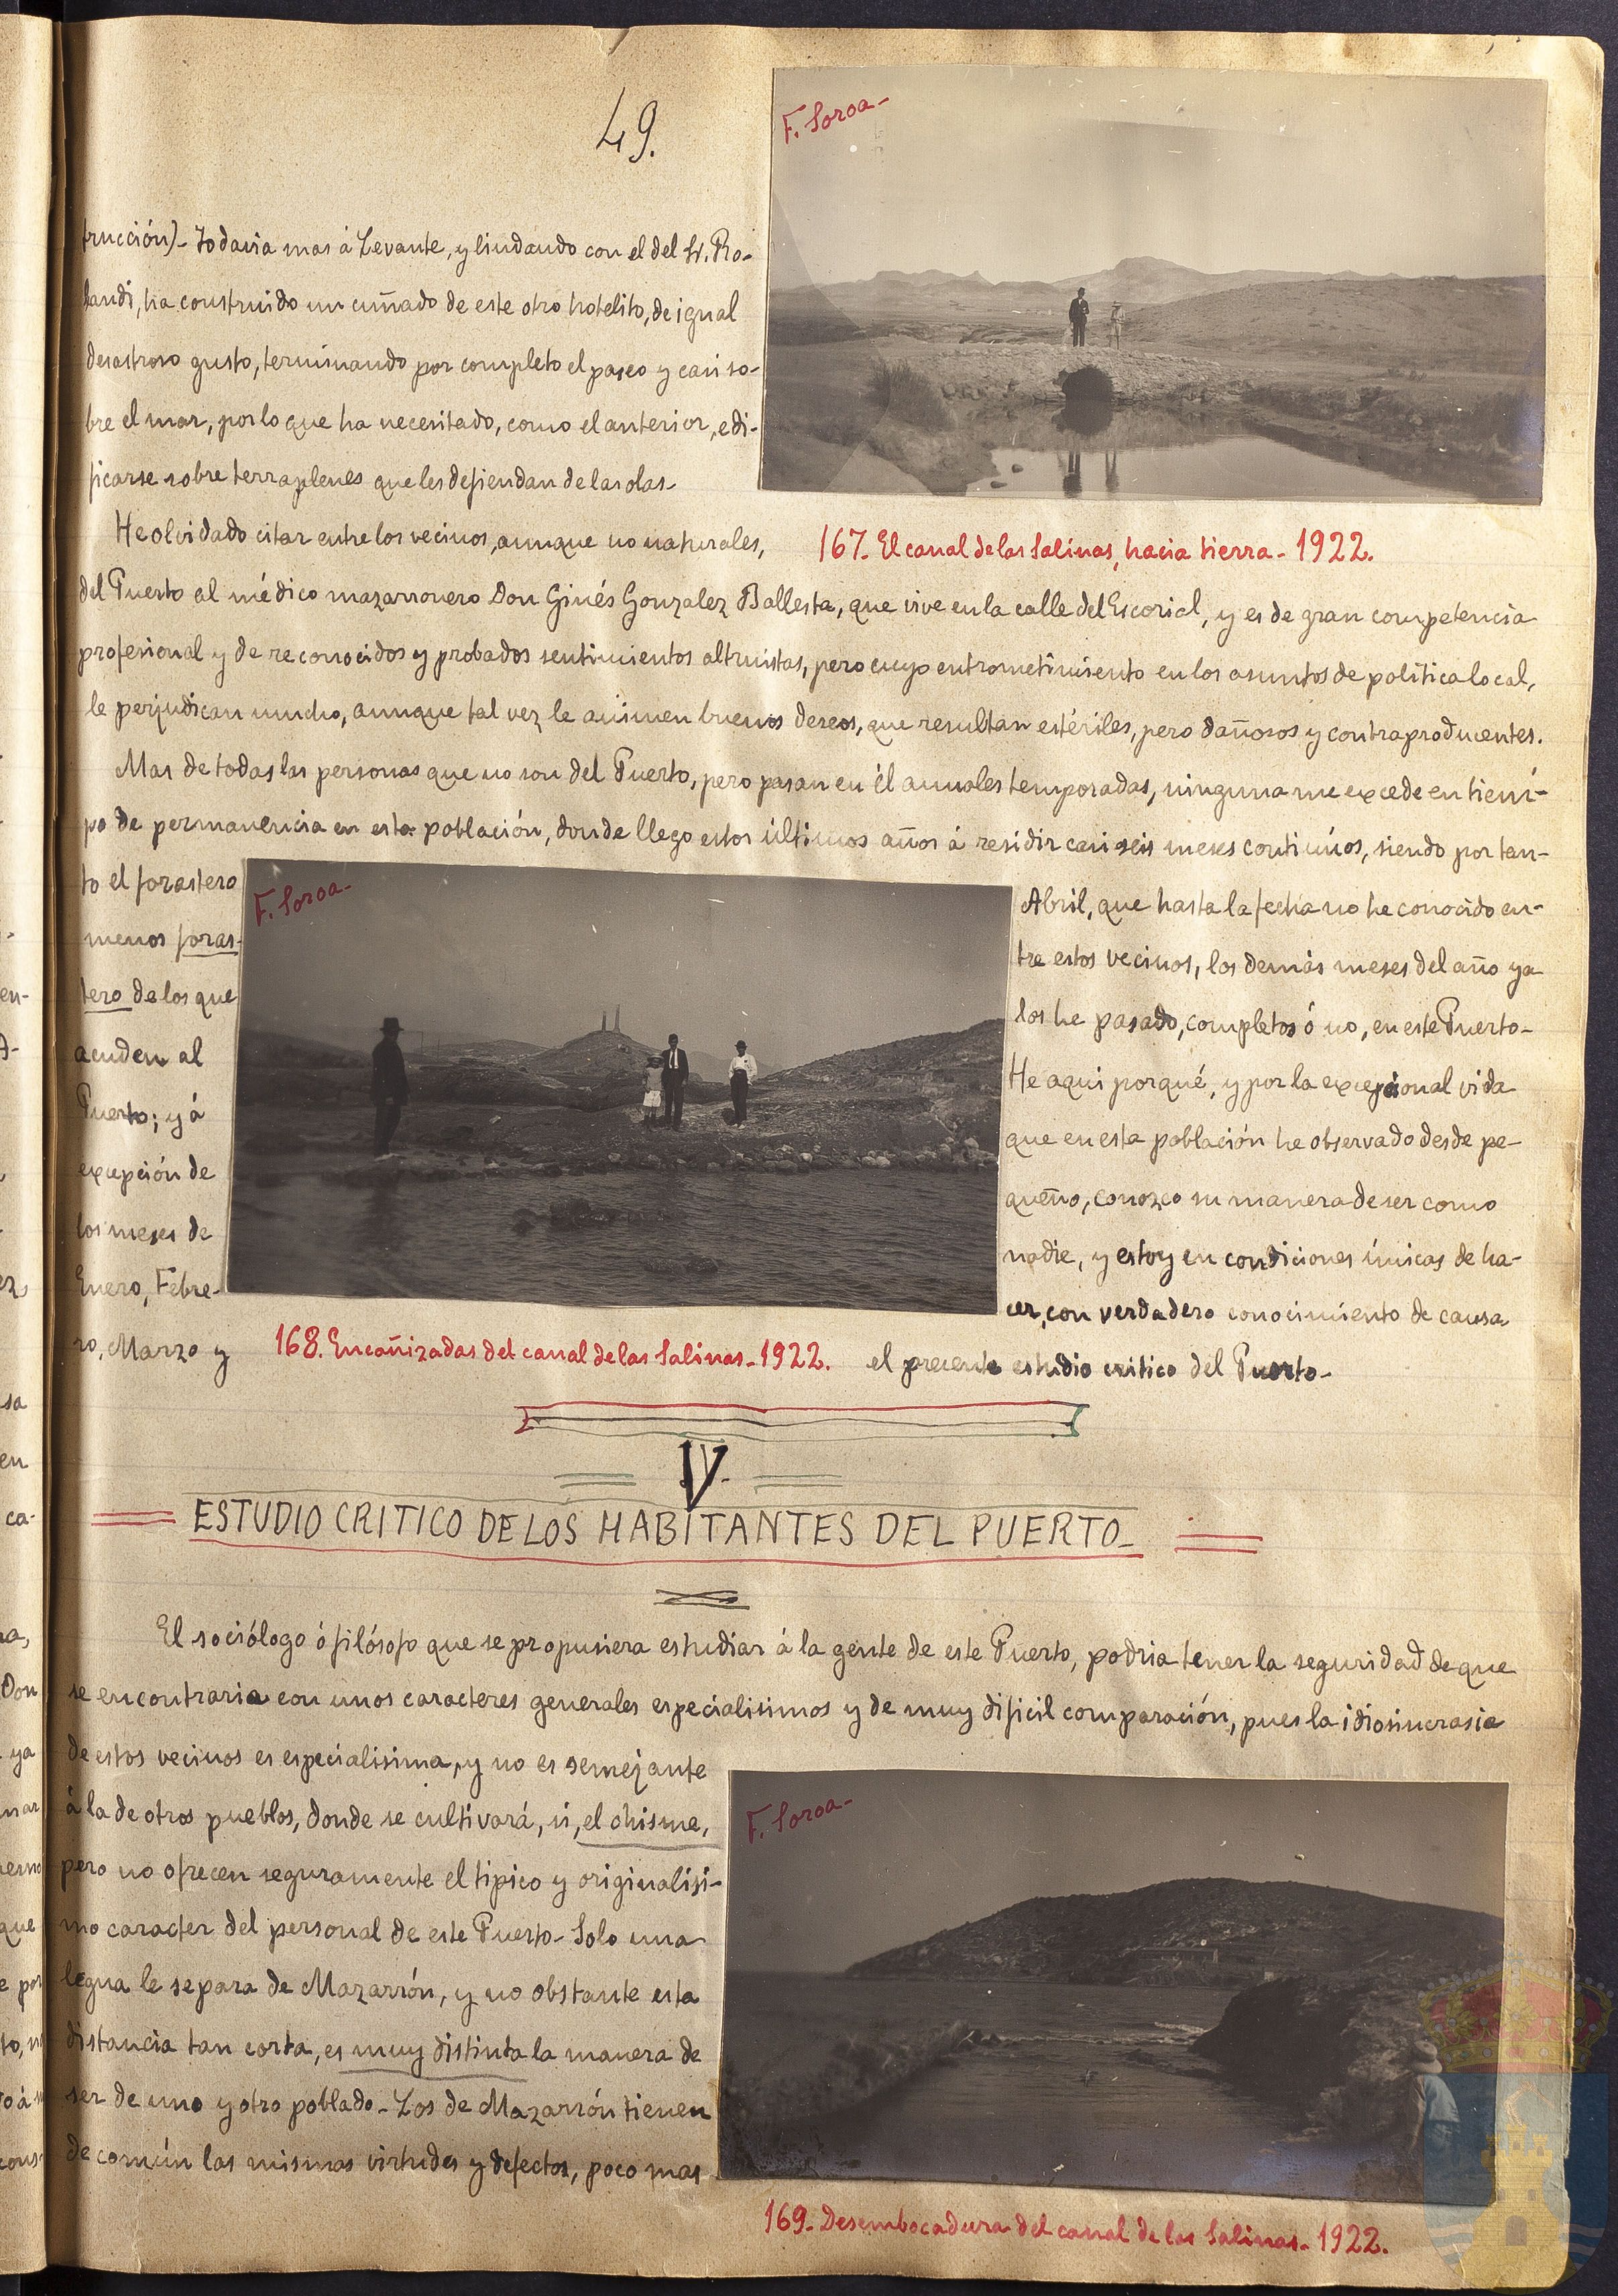 49.
F. Soroa-
trucción)- Todavia mas á Levante, y lindando con el del Sr. Ro-
landi, ha construido un cuñado de este otro hotelito, de igual
desastroso gusto, terminando por completo el paseo y casi so-
bre el mar, por lo que ha necesitado, como el anterior, edi-
ficarse sobre terraplenes que les defiendan de las olas-
He olvidado citar entre los vecinos, aunque no naturales,
167. El canal de las Salinas, hacia tierra- 1922.
del Puerto al médico mazarronero Don Ginés Gonzalez Ballesta, que vive en la calle del Escorial, y es de gran competencia
profesional y de reconocidos y probados sentimientos altruistas, pero cuyo entrometimiento en los asuntos de politica local,
le perjudican mucho, aunque tal vez le animen buenos deseos, que resultan estériles, pero dañosos y contraproducentes.
Mas de todas las personas que no son del Puerto, pero pasan en él anuales temporadas, ninguna me excede en tiem-
po de permanencia en esta población, donde llego estos últimos años á residir casi seis meses continuos, siendo por tan-
to el forastero
menos foras-
tero de los que
acuden al
Puerto; y á
excepción de
los meses de
Enero, Febre-
ro, Marzo y
F. Soroa-
168. Encañizadas del canal de las Salinas- 1922.
Abril, que hasta la fecha no he conocido en-
tre estos vecinos, los demás meses del año ya
los he pasado, completos ó no, en este Puerto-
He aqui porqué, y por la excepcional vida
que en esta población he observado desde pe-
queño, conozco su manera de ser como
nadie, y estoy en condiciones únicas de ha-
cer, con verdadero conocimiento de causa
el presente estudio critico del Puerto-
V-
ESTUDIO CRITICO DE LOS HABITANTES DEL PUERTO-
El sociólogo ó filósofo que se propusiera estudiar á la gente de este Puerto, podria tener la seguridad de que
se encontraria con unos caracteres generales especialisimos y de muy dificil comparación, pues la idiosincrasia
de estos vecinos es especialisima, y no es semejante
á la de otros pueblos, donde se cultivará, si, el chisme,
pero no ofrecen seguramente el tipico y originalisi-
mo caracter del personal de este Puerto- Solo una
legua le separa de Mazarrón, y no obstante esta
distancia tan corta, es muy distinta la manera de
ser de uno y otro poblado- Los de Mazarrón tienen
de común las mismas virtudes y defectos, poco mas
F. Soroa-
169- Desembocadura del canal de las Salinas- 1922.